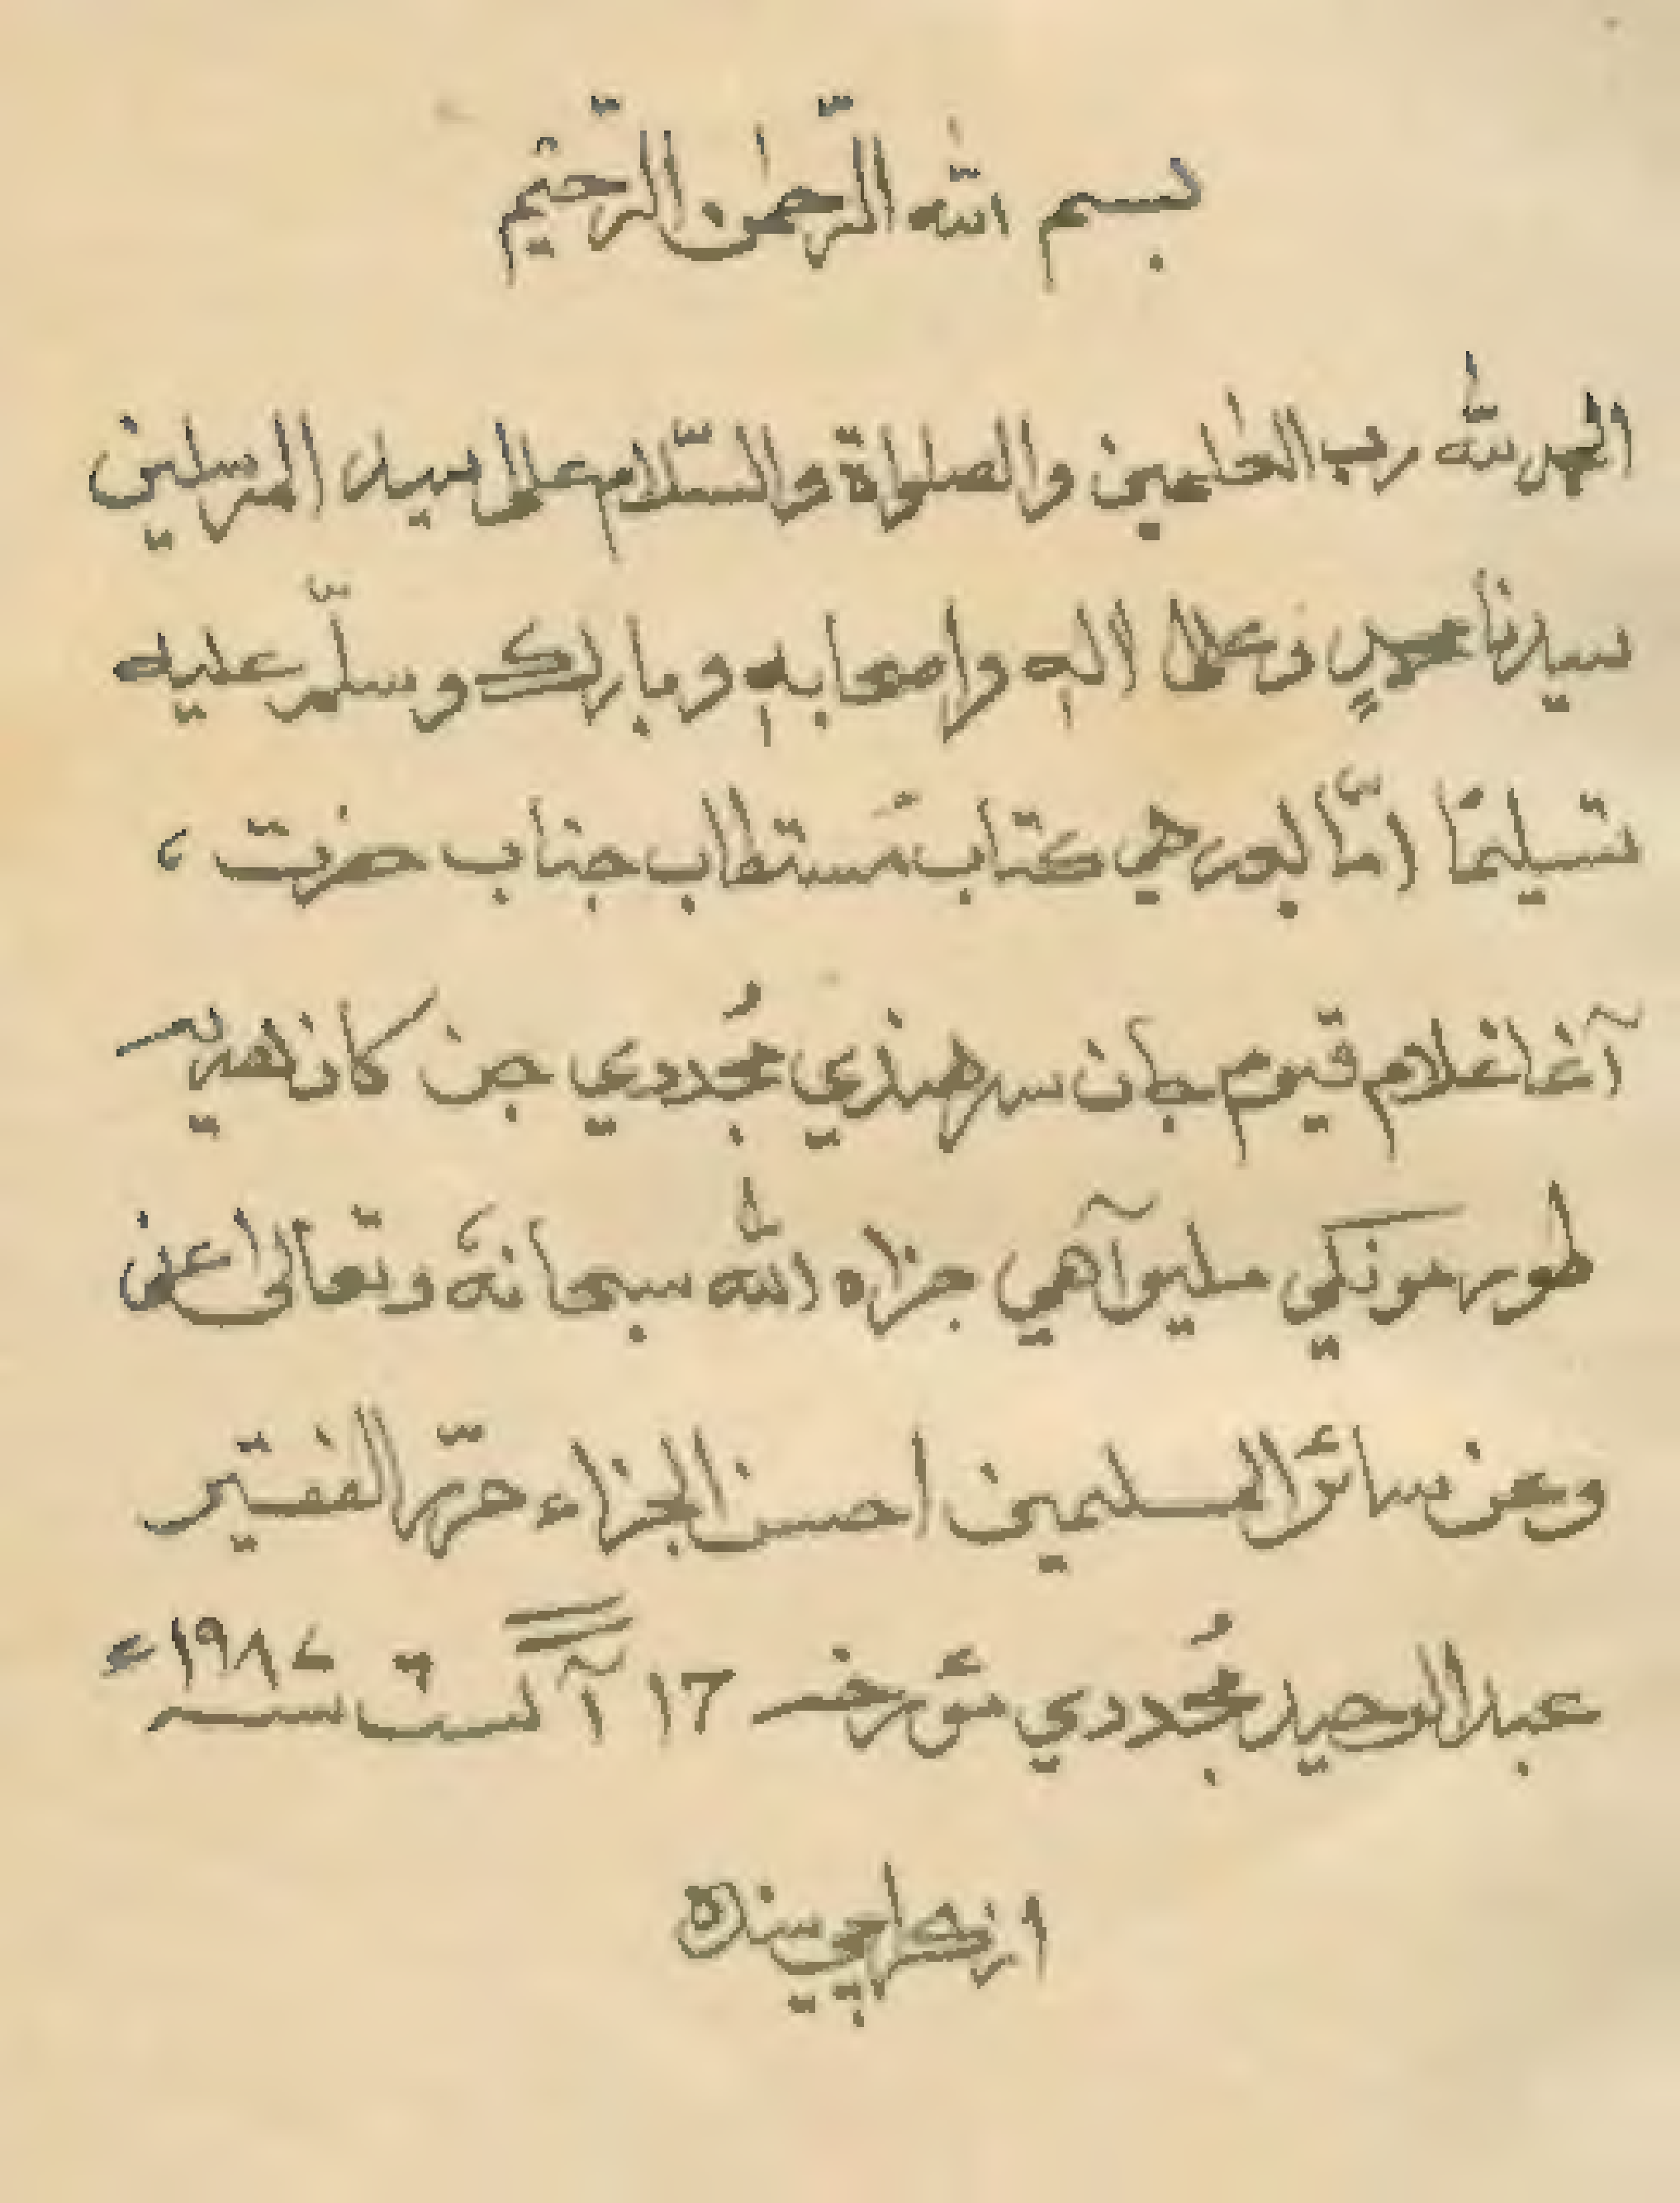 بسم الله الرّحمٰن الرّحيْم
الحمد لله رب العٰلمين والصلواة والسّلام علىٰ سيد المرسلين
سيدنا محمدٍ وعلىٰ اٰلهٖ واصحابهٖ وبارك وسلّم عليه
تسليمًا امّا بعد هي كتاب مُستطاب جناب حضرت ؒ
آغا غلام قيوم جان سرهندي مُجددي جن کان هديہ
طور مونکي مليو آهي جزاه الله سبحانهٗ وتعالىٰ عنى
وعن سائر المسلمين احسن الجزاء حرّره الفقير
عبدالوحيد مُجددي مؤرخہ ١٦ آگست سنہ ١٩٨٧ء
از ڪراچي سنڌ